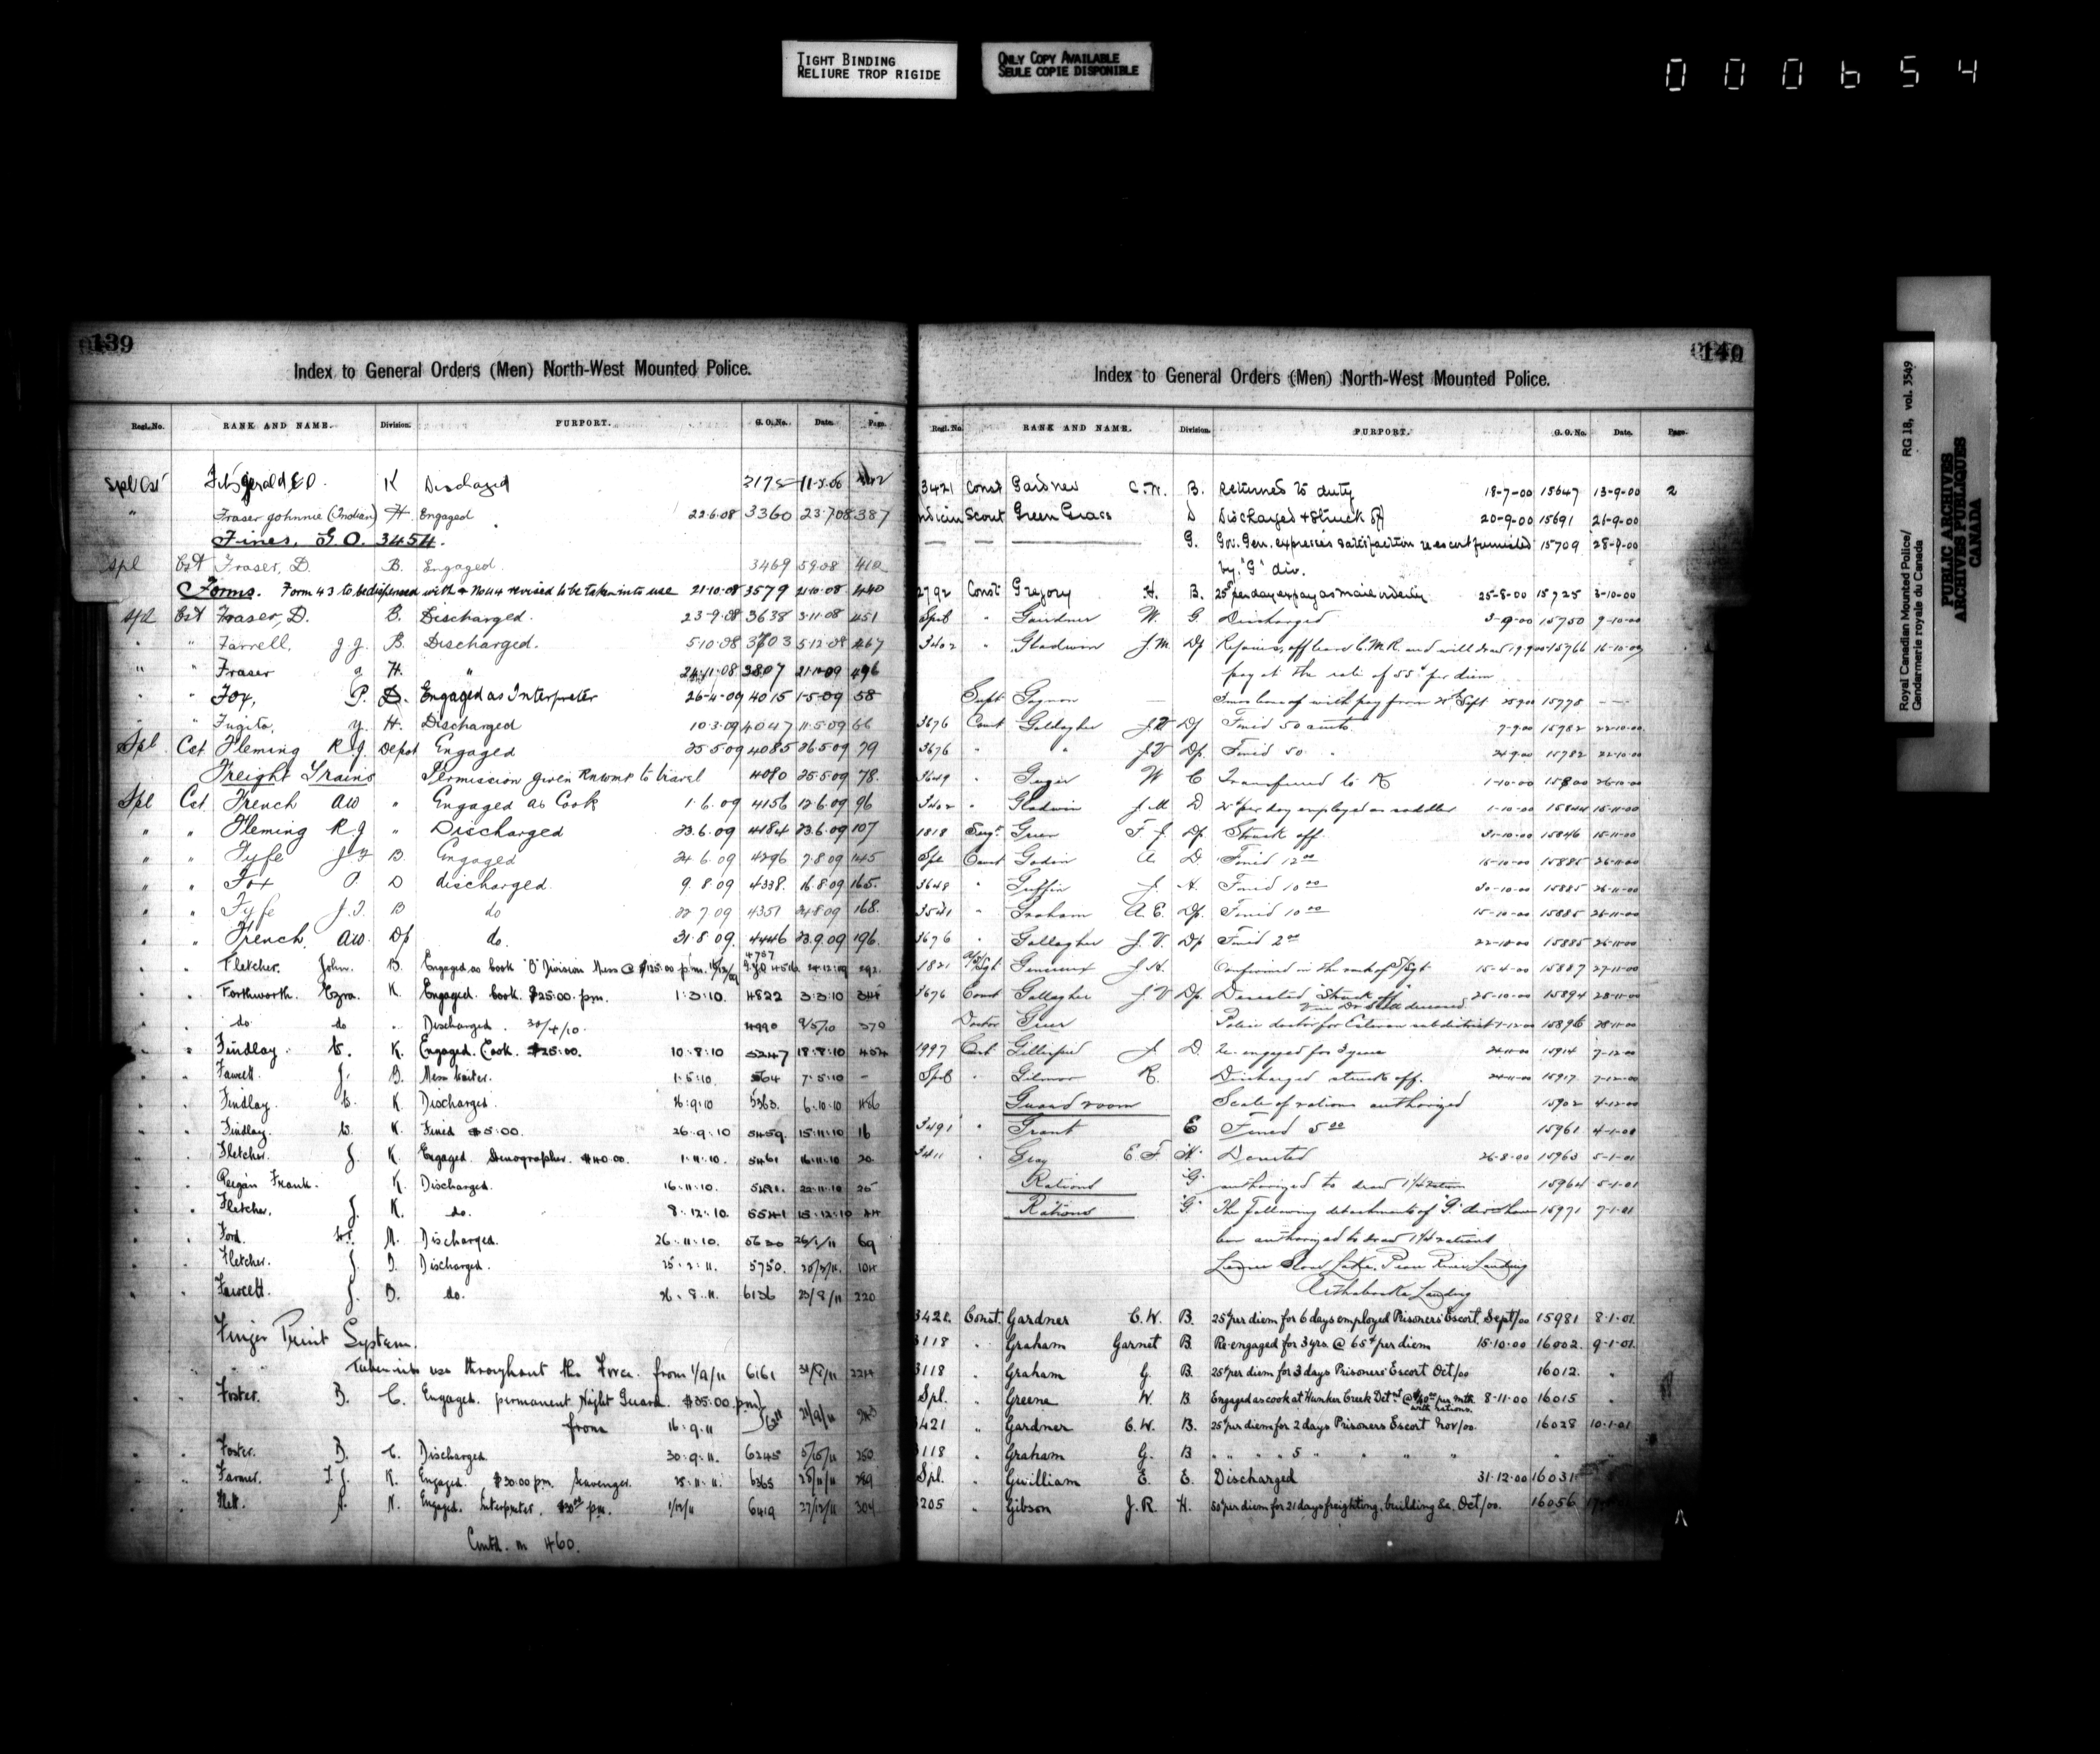 TIGHT BINDING
RELIURE TROP RIGIDE
ONLY COPY AVAILABLE
SEULE COPIE DISPONIBLE
000654
139
Index to General Orders (Men) North-West Mounted Police.
Regl. No. RANK AND NAME. Division. PURPORT. G. O. No. Date. Page.
Spl Cst Fitzgerald K Discharged
" Fraser Johnnie (Indian) H. Engaged 22.6.08 3360 23.7.08 387
Fines, G.O. 3454.
Spl Cst Fraser, D. B. Engaged. 3469 410
Forms. Form 43 to be dispensed with & No 44 revised to be taken into use 21.10.08 3579 21.10.08 440
Spl Cst Fraser, D. B. Discharged. 23.9.08 3638 3.11.08 451
" " Farrell, J J. B. Discharged. 5.10.08 3703 5.12.08 467
" " Fraser H. " 24.11.08 3807 496
" " Fox, P. D. Engaged as Interpreter 26.4.09 4015 1.5.09 58
" " Fugita, Y. H. Discharged 10.3.09 4047 11.5.09 66
Spl Cst Fleming R J Depot Engaged 25.5.09 4085 26.5.09 79
Freight Trains Permission given to travel 4080 25.5.09 78.
Spl Cst French AW " Engaged as Cook 1.6.09 4156 12.6.09 96
" " Fleming R.J " Discharged 23.6.09 4184 23.6.09 107
" " Fyfe J F B. Engaged 24.6.09 4296 7.8.09 145
" " Fox P. D discharged 9.8.09 4338. 16.8.09 165.
" " Fyfe J.F. B do 22.7.09 4351 24.8.09 168.
" " French, AW. Dp do. 31.8.09. 4446 23.9.09 196.
" " Fletcher. John. B. Engaged as Cook "B" Division Mess @ p.m. 24.12.09 292.
" " Forthworth. Ezra. K. Engaged. Cook. $25.00. pm. 1.3.10. 4822 3.3.10 344
" " do do " Discharged. 30/4/10. 4990 9/5/10 370
" " Findlay. K. Engaged. Cook. $25.00. 10.8.10 5247 18.8.10 424
" " Fawcett. J. B. Mess Waiter. 1.5.10. 7.5.10 -
" " Findlay. K. Discharged. 26.9.10 5363. 6.10.10 456
" " Findlay. K. Fined $5.00. 26.9.10 5459. 15.11.10 16
" " Fletcher. J. K. Engaged. Stenographer. $40.00. 1.11.10. 5461 16.11.10 20
" " Frank. K. Discharged. 16.11.10. 22.11.10 25
" " Fletcher. J. K. do. 8.12.10. 5541 15.12.10 44
" " Ford. Discharged. 26.11.10. 5630 26/1/11 69
" " Fletcher. J. D. Discharged. 5750. 104
" " Fawcett. J. D. do. 26.8.11. 6136 23/8/11 220
Finger Print System.
Taken into use throughout the Force. from 1/9/11 6161 31/8/11 224
" " Foster. B. C. Engaged. permanent Night Guard. $35.00. pm)
from 16.9.11 21/9/11
" " Foster. B. C. Discharged. 30.9.11. 6245 5/10/11 250
" " Farmer. T.J. K. Engaged. $30.00 pm. Scavenger. 6365 25/11/11 289
" " Flett. A. N. Engaged. Interpreter. pm. 1/12/11 6419 27/12/11 304
Contd. on 460.
140
Index to General Orders (Men) North-West Mounted Police.
Regl. No. RANK AND NAME. Division. PURPORT. G. O. No. Date. Page.
3421 Const Gardner C.W. B. Returned to duty 18-7-00 15647 13-9-00 2
Indian Scout Green Grass D Discharged & Struck off 20-9-00 15691 26-9-00
G. Gov. Gen. expresses satisfaction re escort furnished 15709 28-9-00
by "G" div.
2792 Const Gregory H. B. 25¢ per day ex pay as mail orderly 25-8-00 15725 3-10-00
Spcl " Gardner W. G. Discharged 3-9-00 15750 9-10-00
3402 " Gladwin J.M. Dp Rejoins, off leave C.M.R. and will draw 19.9.00 15766 16-10-00
pay at the rate of 55¢ per diem
Supt Gagnon — leave of with pay from Sept 15778
3676 Const Gallagher J.V Dp Fined 50 cents 7-9-00 15782 22-10-00
3676 " " J.V Dp. Fined 50 " 24-9-00 15782 22-10-00
3649 " W C Transferred to K 1-10-00 15800 26-10-00
3402 " Gladwin J.M D. 25¢ per day employed as saddler 1-10-00 15844 15-11-00
1818 Sergt Greer F. J. Dp. Struck off 31-10-00 15846 15-11-00
Spl Const Godin A D. Fined 12.00 15-10-00 15885 26-11-00
3648 " Griffin J. A. Fined 10.00 30-10-00 15885 26-11-00
3541 " Graham A.E. Dp. Fined 10.00 15-10-00 15885 26-11-00
3676 " Gallagher J.V. Dp Fined 2.00 22-10-00 15885 26-11-00
1821 Genereux J.H. Confirmed in the rank of S/Sgt 15-4-00 15887 27-11-00
3676 Const Gallagher J.V Dp. Deserted "Struck off" 25-10-00 15894 28-11-00
Doctor Greer Police doctor for Estevan subdistrict 1-12-00 15896 28-11-00
1997 Cst. J. D. Re-engaged for 3 years 15914 7-12-00
Spcl " Gilmor R. Discharged struck off. 24-11-00 15917 7-12-00
Guard room Scale of rations authorized 15902 4-12-00
3491 " Grant E Fined 5.00 15961 4-1-01
3411 " Gray E.F H. Deserted 26-8-00 15963 5-1-01
Rations "G" authorized to draw 1¼ ration 15964 5-1-01
Rations "G" The following detachments of "G" div. have 15971 7-1-01
been authorized to draw 1¼ rations
Lesser Slave Lake, Peace River Landing
Athabaska Landing
3421. Const. Gardner C.W. B. 25¢ per diem for 6 days employed Prisoners Escort Sept/00 15981 8-1-01.
3118 " Graham Garnet B. Re-engaged for 3 yrs. @ 65¢ per diem 15.10.00 16002. 9-1-01.
3118 " Graham G. B. 25¢ per diem for 3 days Prisoners' Escort Oct/00 16012. "
Spl. " Greene W. B Engaged as cook at Hunker Creek Detnt @ per mth. with rations. 8-11-00 16015 "
3421 " Gardner C.W. B. 25¢ per diem for 2 days Prisoners Escort Nov/00. 16028 10-1-01
3118 " Graham G. B " " " " 5 " " " "
Spl. " Gwilliam E. E. Discharged 31.12.00 16031
3205 " Gibson J.R. H. 50¢ per diem for 21 days freighting, building &c. Oct/00. 16056
Royal Canadian Mounted Police/ RG 18, vol. 3549
Gendarmerie royale du Canada
PUBLIC ARCHIVES
ARCHIVES PUBLIQUES
CANADA